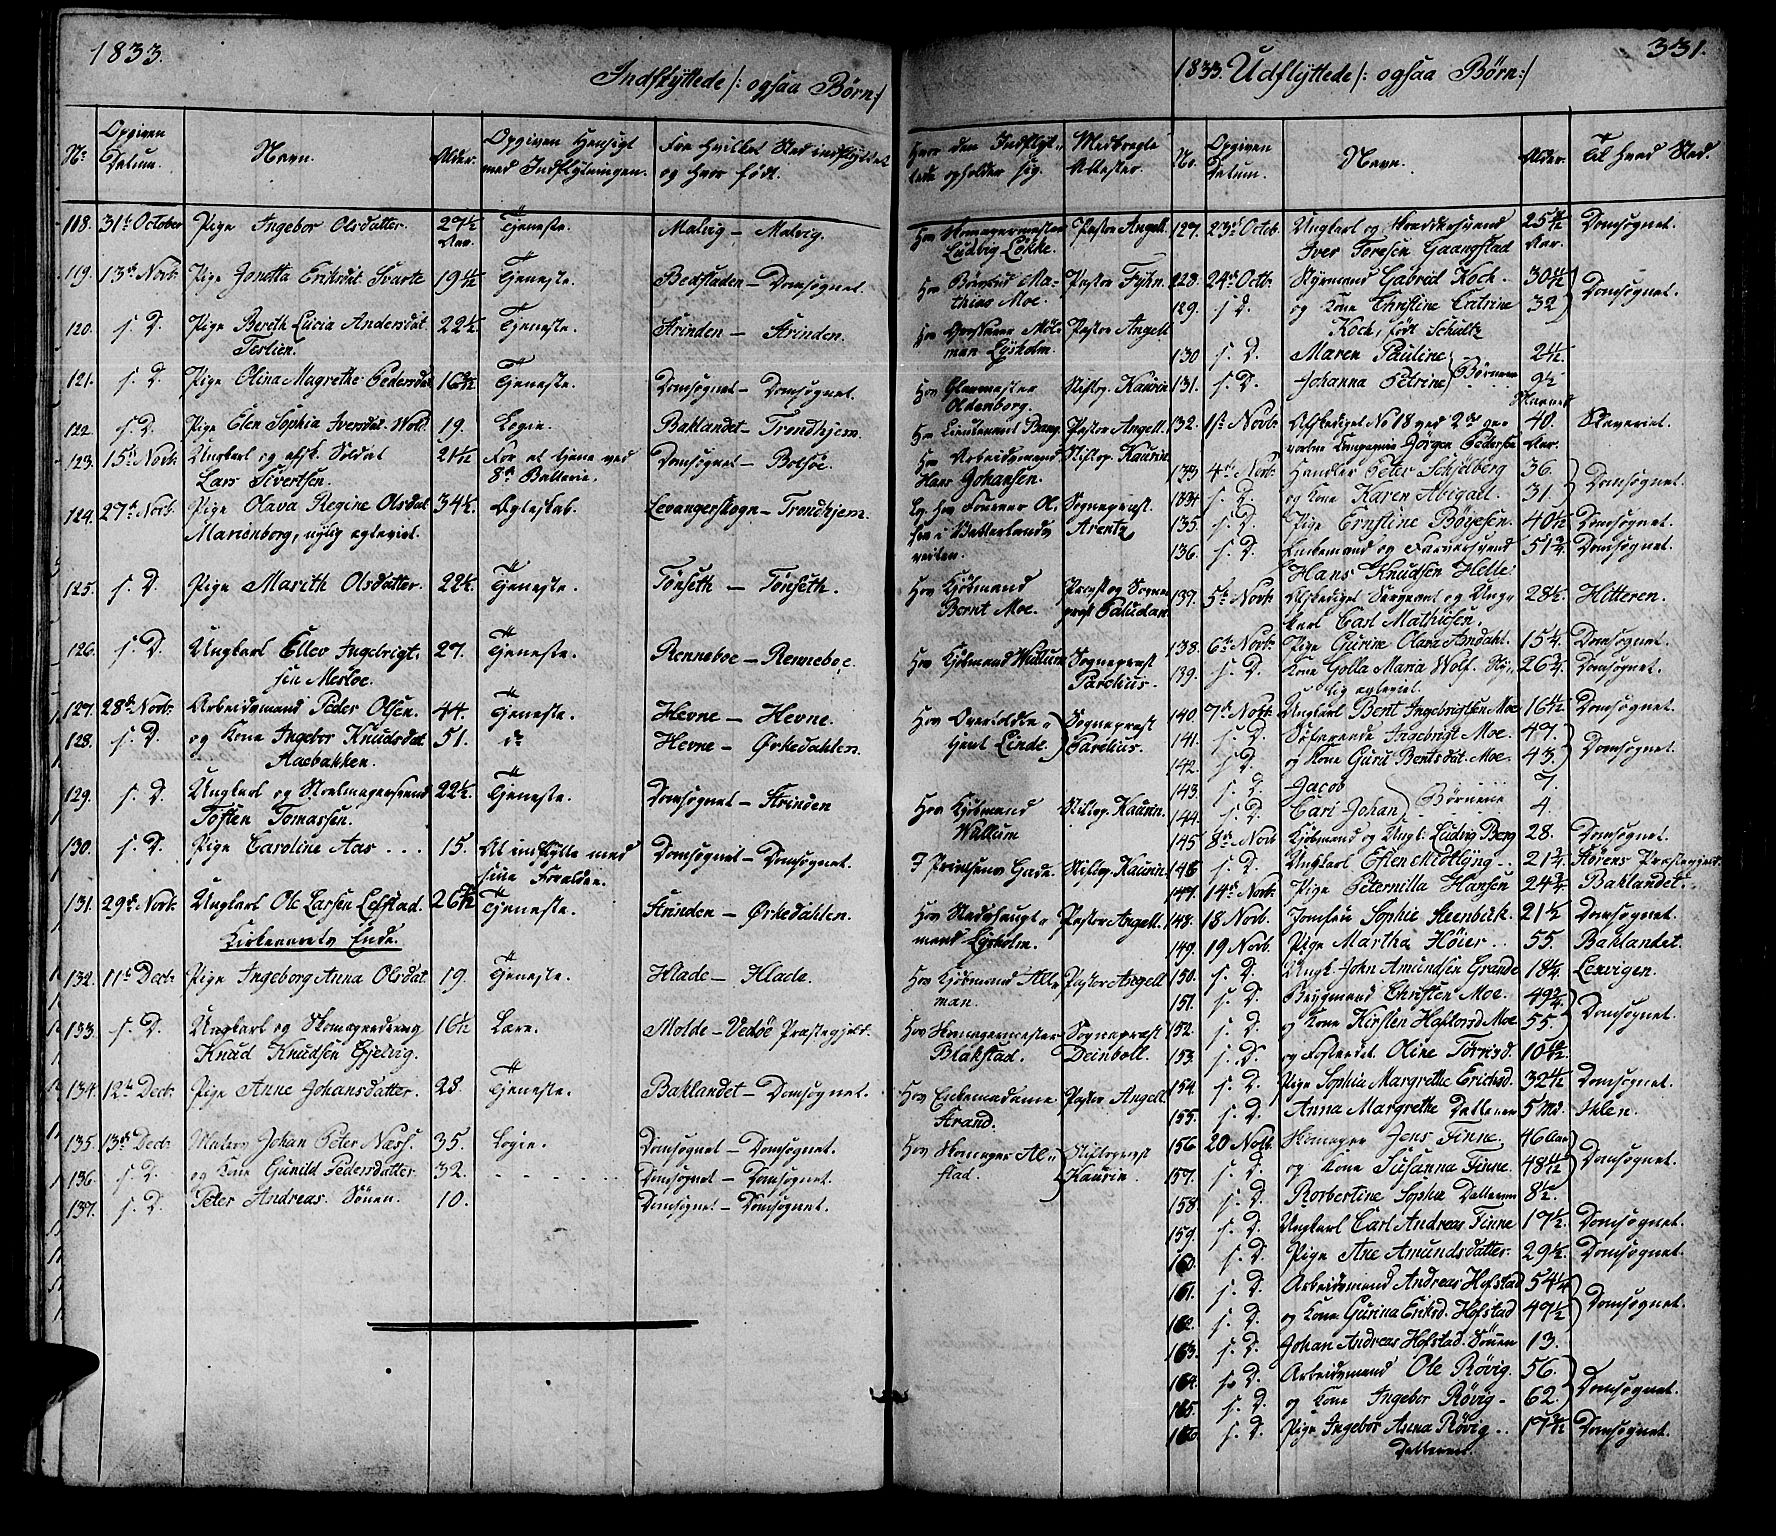 1833.
Indflyttede /: ogsaa Børn :/
No
Opgiven Datum.
Navn.
Alder.
Opgiven Hensigt med Indflytningen.
Fra hvilket Sted indflyttet og hvor født.
Hvor den Indflyttede opholder sig.
Medbragte Attester.
118. 31te October Pige Ingebor Olsdatter. 27½ Aar. Tjeneste. Malvig – Malvig. Hos Skomagermester Ludvig Løkke. Pastor Angell.
119. 13de Novb. Pige Jonetta Eriksdt Svarte 19½ Tjeneste. Bedstaden – Domsognet. Hos Mathias Moe. Pastor
120. s. D. Pige Bereth Lucia Andersdat. Teslien. 22½. Tjeneste. Strinden – Strinden. Hos Lysholm. Pastor Angell
121. s. D. Pige Olina Magrethe Pedersdat 16 Tjeneste. Domsognet – Domsognet. Hos Glarmester Oldenborg. Stiftsp. Kaurin
122. s. D. Pige Elen Sophia Iversdat Wold. 19. Logie. Baklandet – Trondhjem. Hos Lieutenant Bang. Pastor Angell.
123. 15de Novb. Ungkarl og afsk. Soldat Lars Sivertsen. 21 For at tjene ved 8de Batterie. Domsognet – Bolsøe. Hos Arbeidsmand Hans Johansen. Stiftsp. Kaurin
124. 27de Novb. Pige Olava Regine Olsdat Marienborg, 34½ Egteskab. Levangerskogn – Trondhjem. Sogneprest Arentz
125. s. D. Pige Marith Olsdatter. 22½. Tjeneste. Tønseth – Tønseth. Hos Kjøbmand Bernt Moe. Paludan
126. s. D. Ungkarl Ellev Ingebrigtsen Mesloe. 27. Tjeneste. Renneboe – Renneboe. Hos Kjøbmand Wullum Sogneprest Parelius.
127. 28de Novb. Arbeidsmand Peder Olsen. 44. Tjeneste. Hevne – Hevne. Hos Linde. Sogneprest Parelius.
128. s. D. og Kone Ingebor Knudsdat Aaebakken. 51. do Hevne – Ørkedahlen.
129. s. D. Ungkarl og Tosten Tomassen. 22½. Tjeneste. Domsognet – Strinden Hos Kjøbmand Wullum Stiftsp. Kaurin.
130. s. D. Pige Caroline Aas . . . 15. At indflytte med sine Forældre. Domsognet – Domsognet. I Printsens Gade. Stiftsp. Kaurin.
131. 29de Novb. Ungkarl Ole Larsen Lefstad. 26 Tjeneste. Strinden – Ørkedahlen. Hos Stadshauptmand Lysholm. Pastor Angell.
Kirkeaarets Ende.
132. 11te Decb. Pige Ingeborg Anna Olsdat. 19. Tjeneste. Hlade – Hlade. Hos Kjøbmand Allman. Pastor Angell
133. s. D. Ungkarl og Skomagerdreng Knud Knudsen Gjelvig. 16½ Lære. Molde – Vedøe Præstegjeld. Hos Skomagermester Blakstad. Sogneprest Deinboll.
134. 12te Decb. Pige Anne Johansdatter. 28. Tjeneste. Baklandet – Domsognet. Hos Enkemadame Strand. Pastor Angell
135. 13de Decb. Johan Peter Næss. 35. Logie. Domsognet – Domsognet. Hos Skomager Alstad. Stiftsprost Kaurin.
136. s. D. og Kone Gunild Pedersdatter. 32. Domsognet – Domsognet.
137. s. D. Peter Andreas. Sönen. 10. Domsognet – Domsognet.
331.
1833. Udflyttede /: ogsaa Børn :/
No.
Opgiven Datum.
Navn.
Alder.
Til hvad Sted.
127. 23de Octob. Ungkarl og Iver Toresen Gaangstad 25 Aar. Domsognet.
128. 24de Octb. Styrmand Gabriel Koch. 30 Domsognet.
129. s. D. og Kone Christine Catrine Koch, født Schultz 32
130 s. D. Maren Pauline 2½
131. s. D. Johanna Petrine Børnene 9½
132. 1ste Novb. Jørgen Pedersen 40. Aar. Slaveriet.
133 4de Novb. Handler Peter Schjelberg 36. Domsognet.
134. s. D. og Kone Karen Abigael. 31.
135. s. D. Pige Ernstine Böyesen. 40½ Domsognet.
136. s. D. Enkemand og Farversvend Hans Knudsen Helle. 51¾ Domsognet.
137. 5te Novb. Afskediget Sergeant og Ungkarl Carl Mathiesen. 28½. Hitteren.
138. 6te Novb. Pige Gurine Olava Andahl. 15¼. Domsognet.
139. s. D. Kone Golla Maria Wolf. 26¾. Domsognet.
140. 7de Novb. Ungkarl Bent Ingebrigtsen Moe 16½. Domsognet.
141. s. D. Søfarende Ingebrigt Moe. 47. Domsognet.
142. s. D. og Kone Guru Bentsdat. Moe. 43.
143. s. D. Jacob Börnene 7.
144. s. D. Carl Johan 4.
145 8de Novb Kjøbmand og Ungk. Ludvig Berg 28. Domsognet.
146 s. D. Ungkarl Esten Midtlyng . . 21¾. Størens Præstegjeld.
147. 14de Novb. Pige Peternilla Hansen 24¾. Baklandet.
148. 18 Novb. Jomfru Sophie Steenbuk 21½ Domsognet.
149. 19 Novb. Pige Martha Höier . . 55. Baklandet.
150. s. D. Ungk. John Amundsen Grande 18¼. Lexvigen.
151. s. D. Bÿgmand Christen Moe. 49¾. Domsognet.
152. s. D. og Kone Kirsten Haftorsd. Moe 55.
153. s. D. og Fosterdt. Oline Törrisd. 10
154. s. D. Pige Sophia Margrethe Ericksd. 32½ Domsognet.
155. s. D. Anna Margrethe Datteren 5 Md.
156 20 Novb. Skomager Jens Finne. 46 Aar Domsognet.
157. s. D. og Kone Susanna Finne. 48
158. s. D. Rorbertine Sophia Datteren 8½.
159. s. D. Ungkarl Carl Andreas Finne 17½ Domsognet.
160. s. D. Pige Ane Amundsdatter. 29½. Domsognet.
161. s. D. Arbeidsmand Andreas Hofstad 54¼ Domsognet.
162. s. D. og Kone Gurina Eriksd. Hofstad 47½
163. s. D. Johan Andreas Hofstad. Sönen 13.
164. s. D. Arbeidsmand Ole Rövig. 56. Domsognet.
165. s. D. og Kone Ingebor Rövig – 62.
166 s. D. Pige Ingebor Anna Rövig – . Datteren. 17 Domsognet.